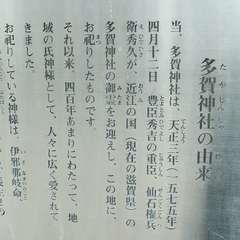 多賀神社の由来
たがじんじゃ
ゆらい
当、多賀神社は、天正三年(一五七五年)
四月十二日 豊臣秀吉の重臣、仙石権兵
衛秀久が、近江の国(現在の滋賀県)の
多賀神社の御霊をお迎えし、この地に、
お祀りしたものです
それ以来、四百年あまりにわたって、地
域の氏神様として、人々に広く愛されて
きました。
お祀りしている神様は、伊邪那岐命